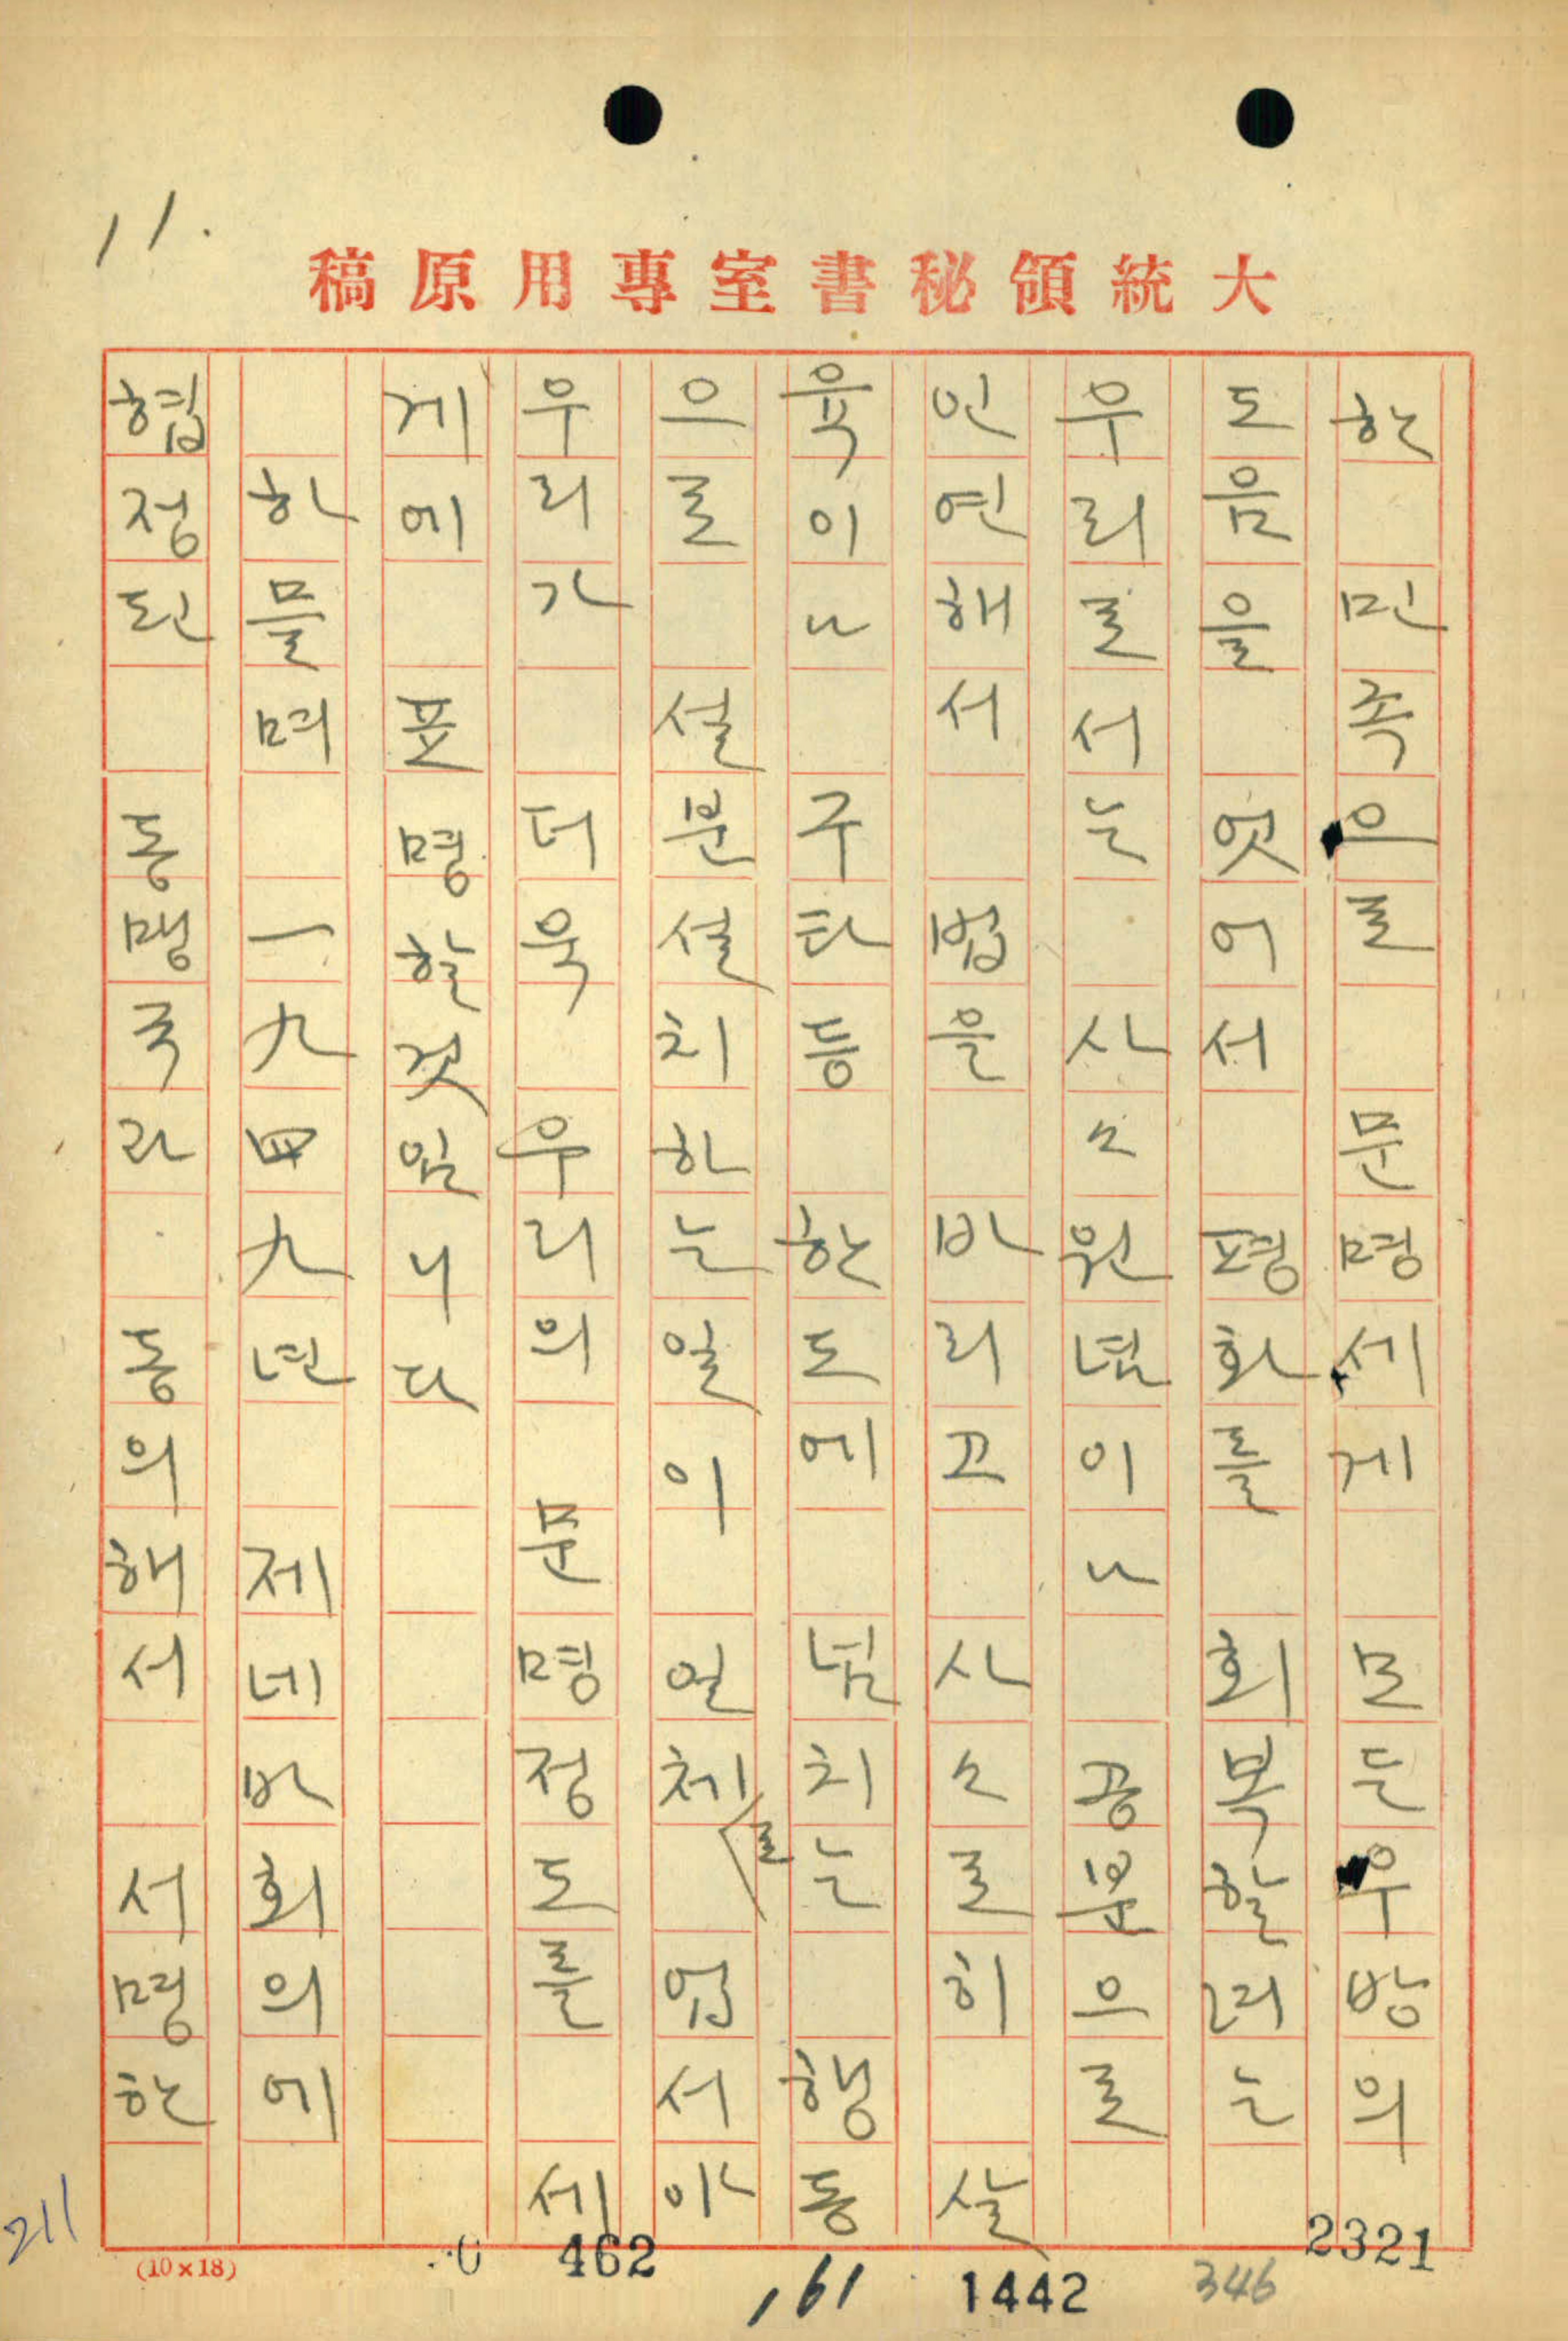 11.
大統領秘書室專用原稿
한 민족으로 문명세게 모든우방의
도음을 엇어서 평화를 회복할려는
우리로서는 사々원념이나 공분으로
인연해서 법을 바리고 사々로히 살
육이나 구타등 한도에 넘치는 행동
으로 설분설치하는일이 일체로 업서야
우리가 더욱 우리의 문명정도를 세
게에 표명할것임니다
하물며 一九四九년 제네바회의에
협정된 동맹국라 동의해서 서명한
(10×18)
211
462
161
1442
346
2321